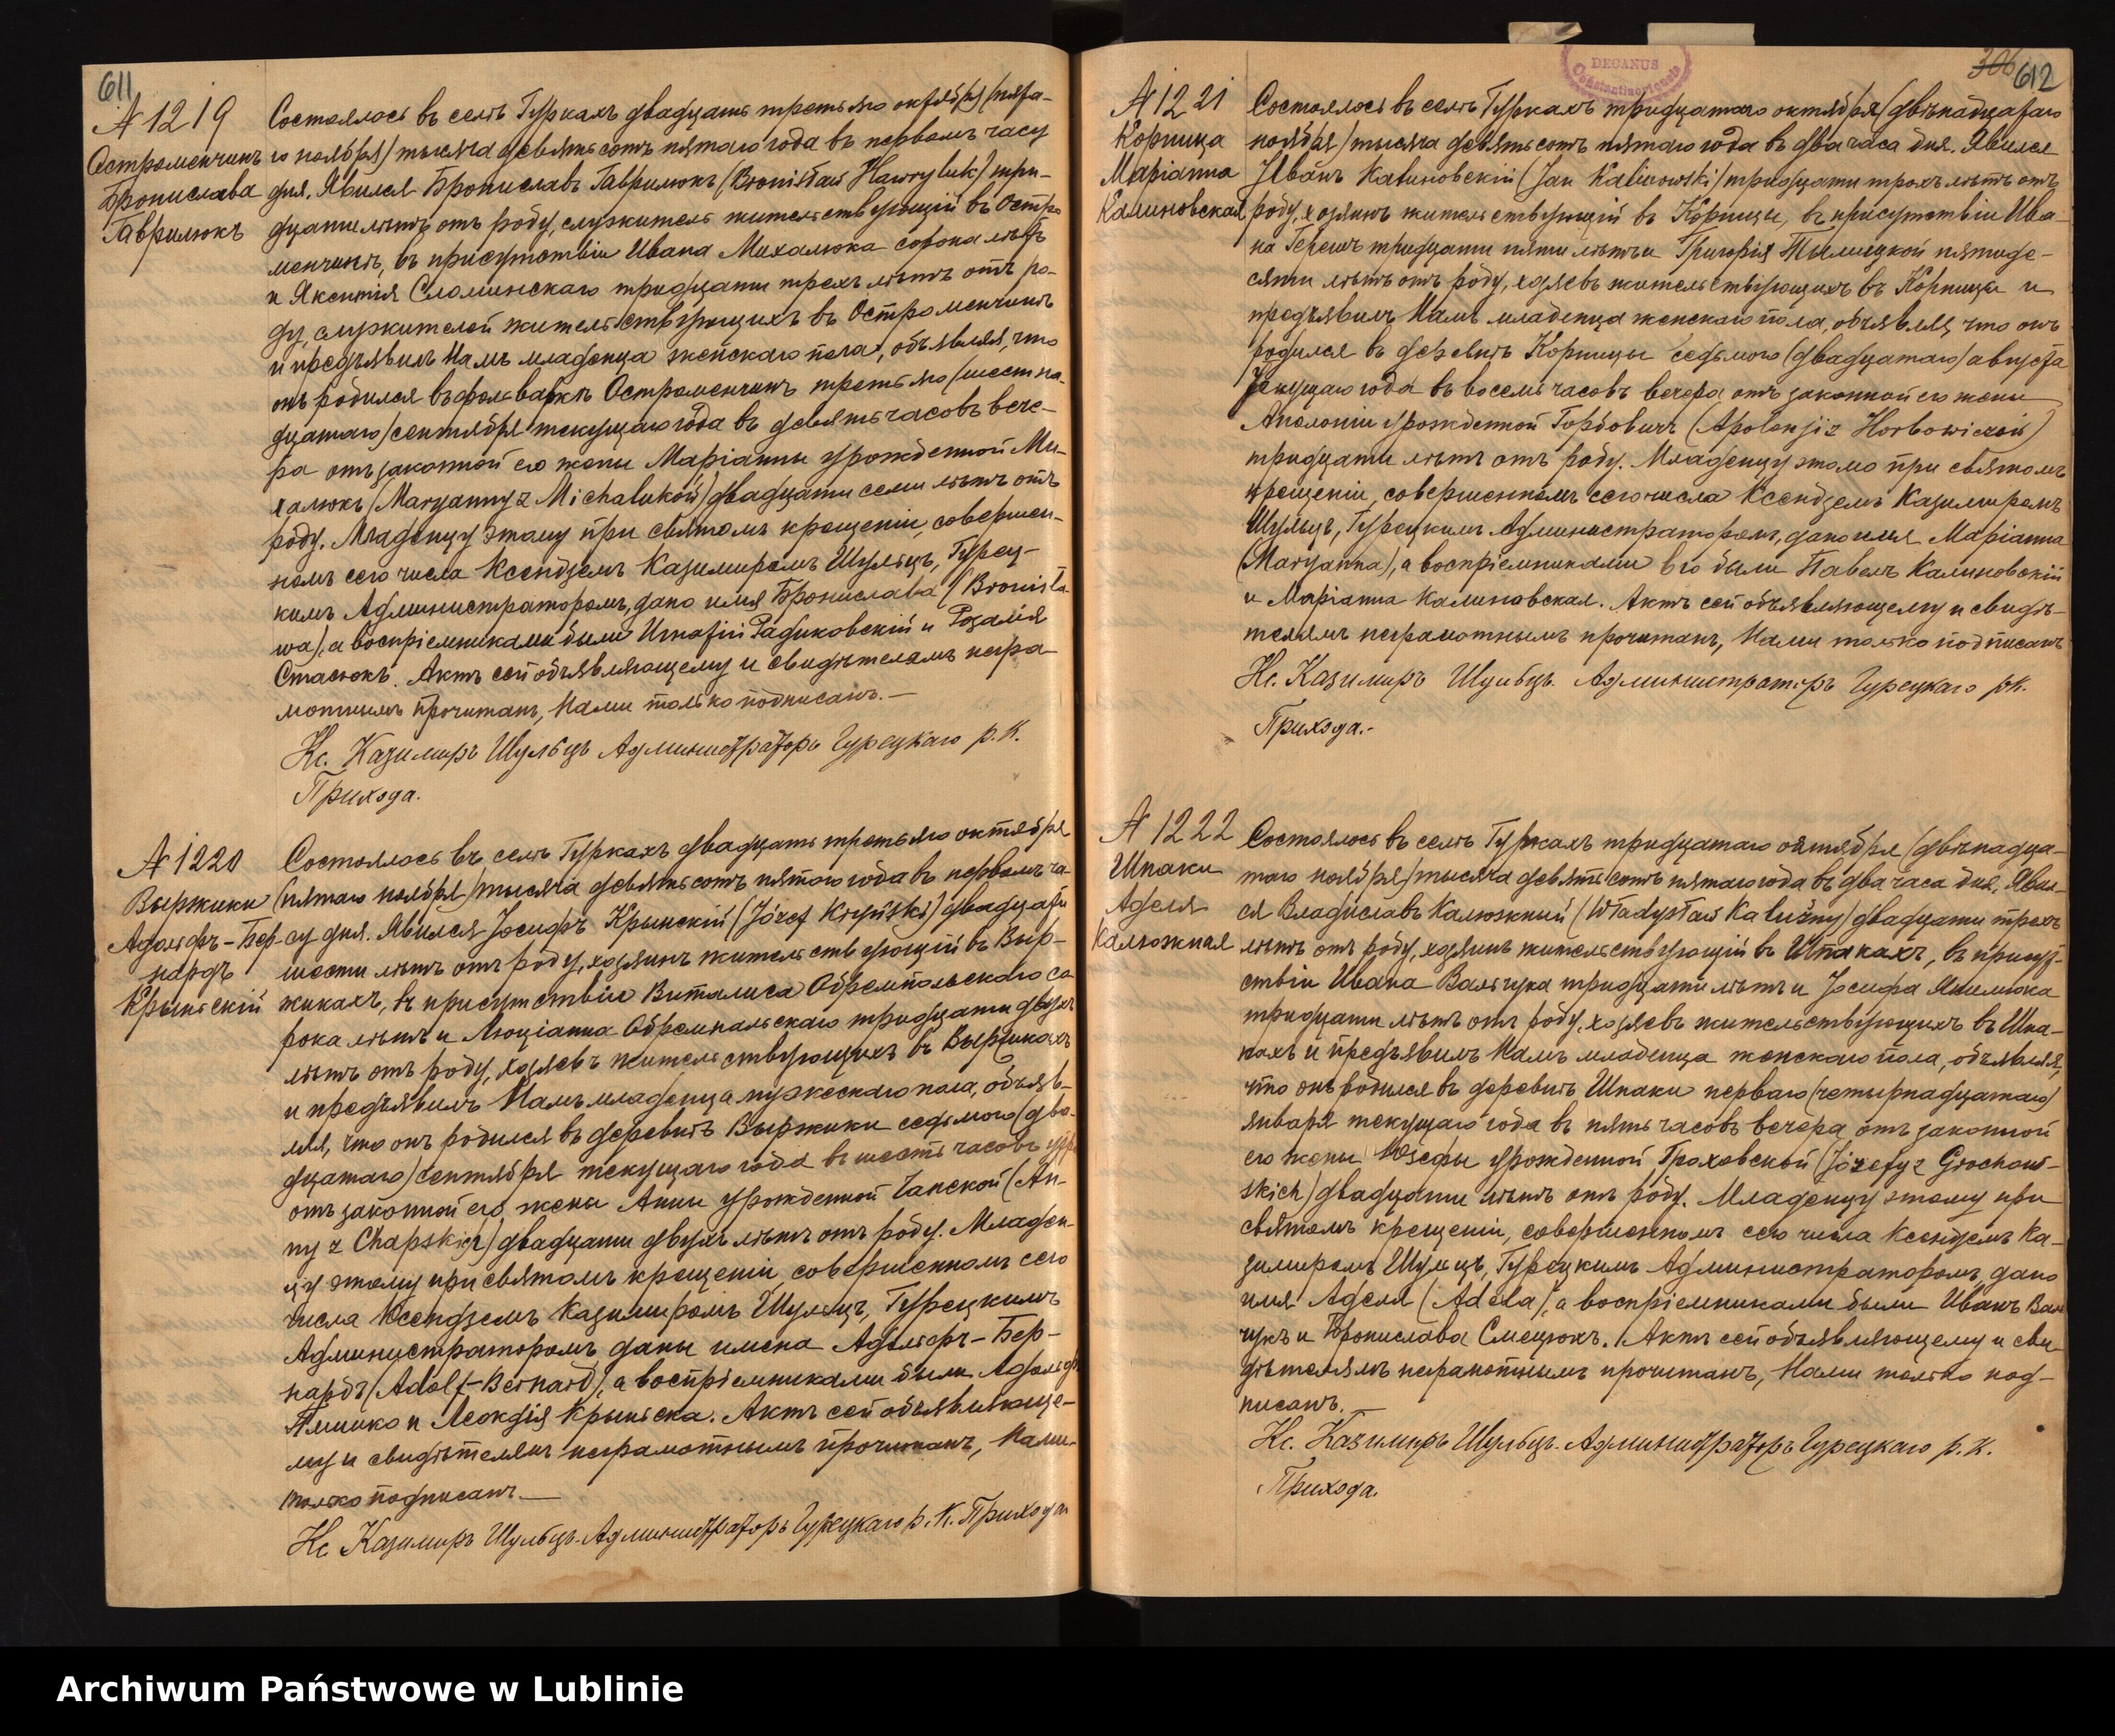 611
№ 1219
Остроменчинъ
Бронислава
Гаврилюкъ
Состоялось въ селѣ Туркахъ двадцать третьяго октября (пята-
го ноября) тысяча девятьсотъ пятаго года въ первомъ часу
дня. Явился Брониславъ Гаврилюкъ (Bronisław Hawryluk) три-
дцати лѣтъ отъ роду, служитель жительствующій въ Остро
менчинѣ, въ присутствіи Ивана Михалюка сорока лѣтъ
и Яксентія Сломинскаго тридцати трехъ лѣтъ отъ ро-
ду, служителей жительствующихъ въ Остроменчинѣ
и предъявилъ Намъ младенца женскаго пола, объявляя, что
онъ родился въ фольваркѣ Остроменчинъ третьяго (шестна-
дцатаго) сентября текущаго года въ девять часовъ вече-
ра отъ законной его жены Маріанны урожденной Ми-
халюкъ (Maryanny z Michaluków) двадцати семи лѣтъ отъ
роду. Младенцу этому при святомъ крещеніи, совершен-
номъ сего числа Ксендзомъ Казимиромъ Шульцъ, Турец-
кимъ Администраторомъ, дано имя Бронислава (Bronisła-
wa), а воспріемниками были Игнатій Радиковскій и Розалія
Стасюкъ. Актъ сей объявляющему и свидѣтелямъ негра-
мотнымъ прочитанъ, Нами только подписанъ. —
Кс. Казимиръ Шульцъ Администраторъ Турецкаго р. К.
Прихода.
№ 1220
Выржики
Адольфъ-Бер-
нардъ
Крыньскій
Состоялось въ селѣ Туркахъ двадцать третьяго октября
(пятаго ноября) тысяча девятьсотъ пятаго года въ первомъ ча-
су дня. Явился Іосифъ Крынскій (Józef Kryński) двадцати
шести лѣтъ отъ роду, хозяинъ жительствующій въ Выр-
жикахъ, въ присутствіи Виталиса Обремпольскаго со
рока лѣтъ и Люціанна Обремпальскаго тридцати двухъ
лѣтъ отъ роду, хозяевъ жительствующихъ въ Выржикахъ
и предъявилъ Намъ младенца мужескаго пола, объяв-
ляя, что онъ родился въ деревнѣ Выржики седьмого (два-
дцатаго) сентября текущаго года въ шесть часовъ утра
отъ законной его жены Анны урожденной Чапской (An-
ny z Chapskich) двадцати двухъ лѣтъ отъ роду. Младен-
цу этому при святомъ крещеніи, совершенномъ сего
числа Ксендзомъ Казимиромъ Шульцъ, Турецкимъ
Администраторомъ даны имена Адольфъ-Бер-
нардъ (Adolf-Bernard), а воспріемниками были Адольфъ
и Леокдія Крыньска. Актъ сей объявляюще-
му и свидѣтелямъ неграмотнымъ прочитанъ, Нами
только подписанъ —
Кс. Казимиръ Шульцъ. Администраторъ Турецкаго р. К. Прихода
DECANUS
Constantinoviensis
306 612
№ 1221
Корница
Маріанна
Калиновская
Состоялось въ селѣ Туркахъ тридцатаго октября (двѣнадцатаго
ноября) тысяча девятьсотъ пятаго года въ два часа дня. Явился
Иванъ Калиновскій (Jan Kalinowski) тридцати трехъ лѣтъ отъ
роду, хозяинъ жительствующій въ Корницы, въ присутствіи Ива-
на Герешъ тридцати пяти лѣтъ и Григорія Тымицкой пятиде-
сяти лѣтъ отъ роду, хозяевъ жительствующихъ въ Корницы и
предъявилъ Намъ младенца женскаго пола, объявляя, что онъ
родился въ деревнѣ Корницы седьмого (двадцатаго) августа
текущаго года въ восемь часовъ вечера отъ законной его жены
Аполоніи урожденной Горбовичъ (Apolonji z Horbowiczów)
тридцати лѣтъ отъ роду. Младенцу этому при святомъ
крещеніи, совершенномъ сего числа Ксендземъ Казимиромъ
Шульцъ, Турецкимъ Администраторомъ, дано имя Маріанна
(Maryanna), а воспріемниками его были Павелъ Калиновскій
и Маріанна Калиновская. Актъ сей объявляющему и свидѣ-
телямъ неграмотнымъ прочитанъ, Нами только подписанъ
Кс. Казимиръ Шульцъ. Администраторъ Турецкаго р.К.
Прихода.-
№ 1222
Шпаки
Аделя
Калюжная
Состоялось въ селѣ Туркахъ тридцатаго октября (двѣнадца-
таго ноября) тысяча девятьсотъ пятаго года въ два часа дня. Явил-
ся Владиславъ Калюжный (Władysław Kałużny) двадцати трехъ
лѣтъ отъ роду, хозяинъ жительствующій въ Шпакахъ, въ присут-
ствіи Ивана Вальчука тридцати лѣтъ и Іосифа Якимюка
тридцати лѣтъ отъ роду, хозяевъ жительствующихъ въ Шпа-
кахъ и предъявилъ Намъ младенца женскаго пола, объявляя,
что онъ родился въ деревнѣ Шпаки перваго (четырнадцатаго)
января текущаго года въ пять часовъ вечера отъ законной
его жены Юзефы урожденной Гроховской (Józefy z Grochow-
skich) двадцати лѣтъ отъ роду. Младенцу этому при
святомъ крещеніи, совершенномъ сего числа Ксендземъ Ка-
зимиромъ Шульцъ, Турецкимъ Администраторомъ, дано
имя Аделя (Adela), а воспріемниками были Иванъ Валь
чукъ и Бронислава Смецюкъ. Актъ сей объявляющему и сви-
дѣтелямъ неграмотнымъ прочитанъ, Нами только под-
писанъ. —
Кс. Казимиръ Шульцъ. Администраторъ Турецкаго р. К.
Прихода.
Archiwum Państwowe w Lublinie